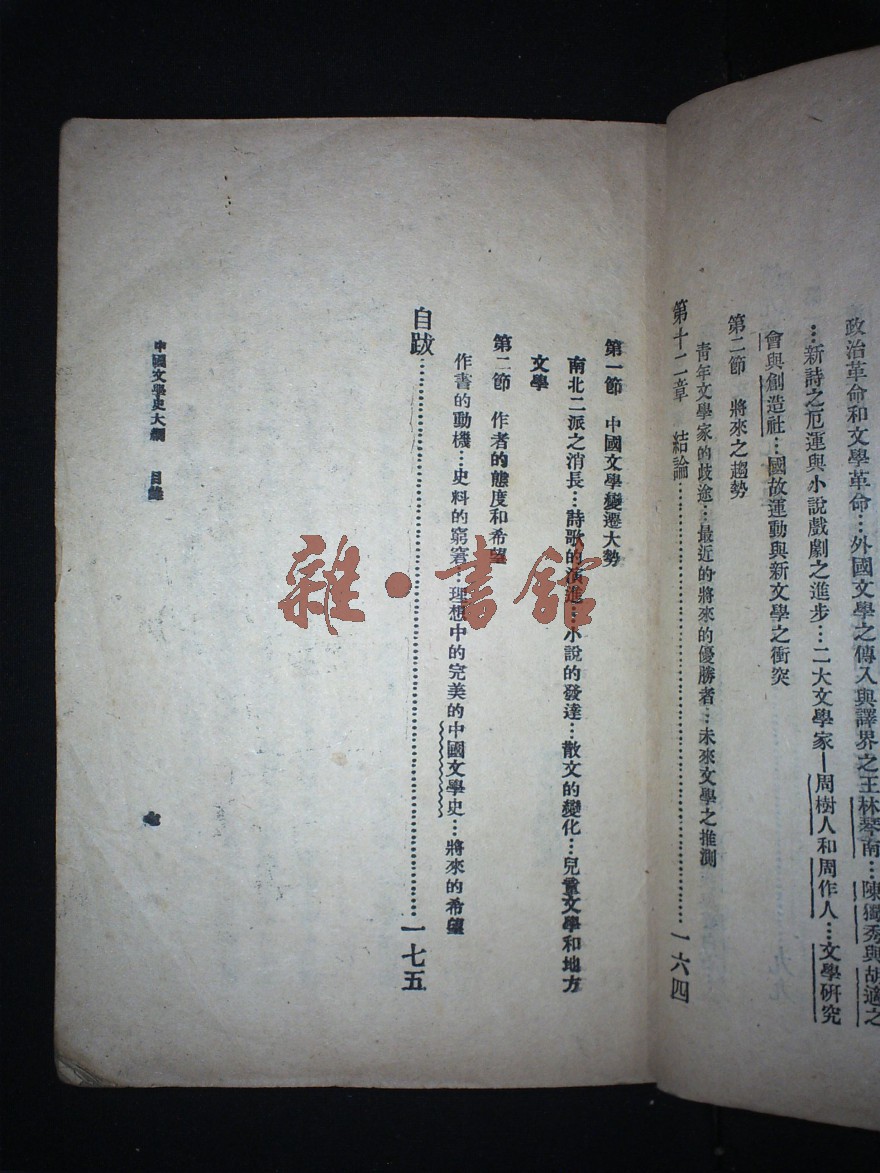 政治革命和文學革命…外國文學之傳入與譯界之王林琴南…陳獨秀與胡適之
…新詩之厄運與小說戲劇之進步…二大文學家—周樹人和周作人…文學研究
會與創造社…國故運動與新文學之衝突
第二節 將來之趨勢
青年文學家的歧途…最近的將來的優勝者…未來文學之推測
第十二章 結論…一六四
第一節 中國文學變遷大勢
南北二派之消長…詩歌的演進…小說的發達…散文的變化…兒童文學和地方
文學
第二節 作者的態度和希望
作書的動機…史料的窮窘…理想中的完美的中國文學史…將來的希望
自跋…一七五
中國文學史大綱 目錄
七
雜·書館